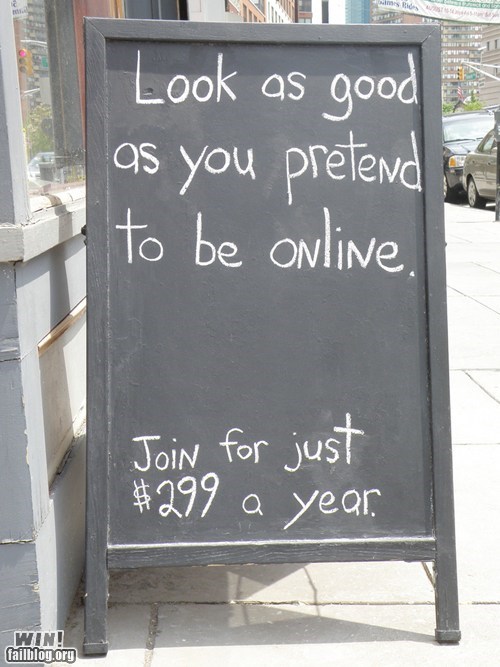 Look as good
as you pretend
to be online.
Join for just
$299 a year.
WIN!
failblog.org